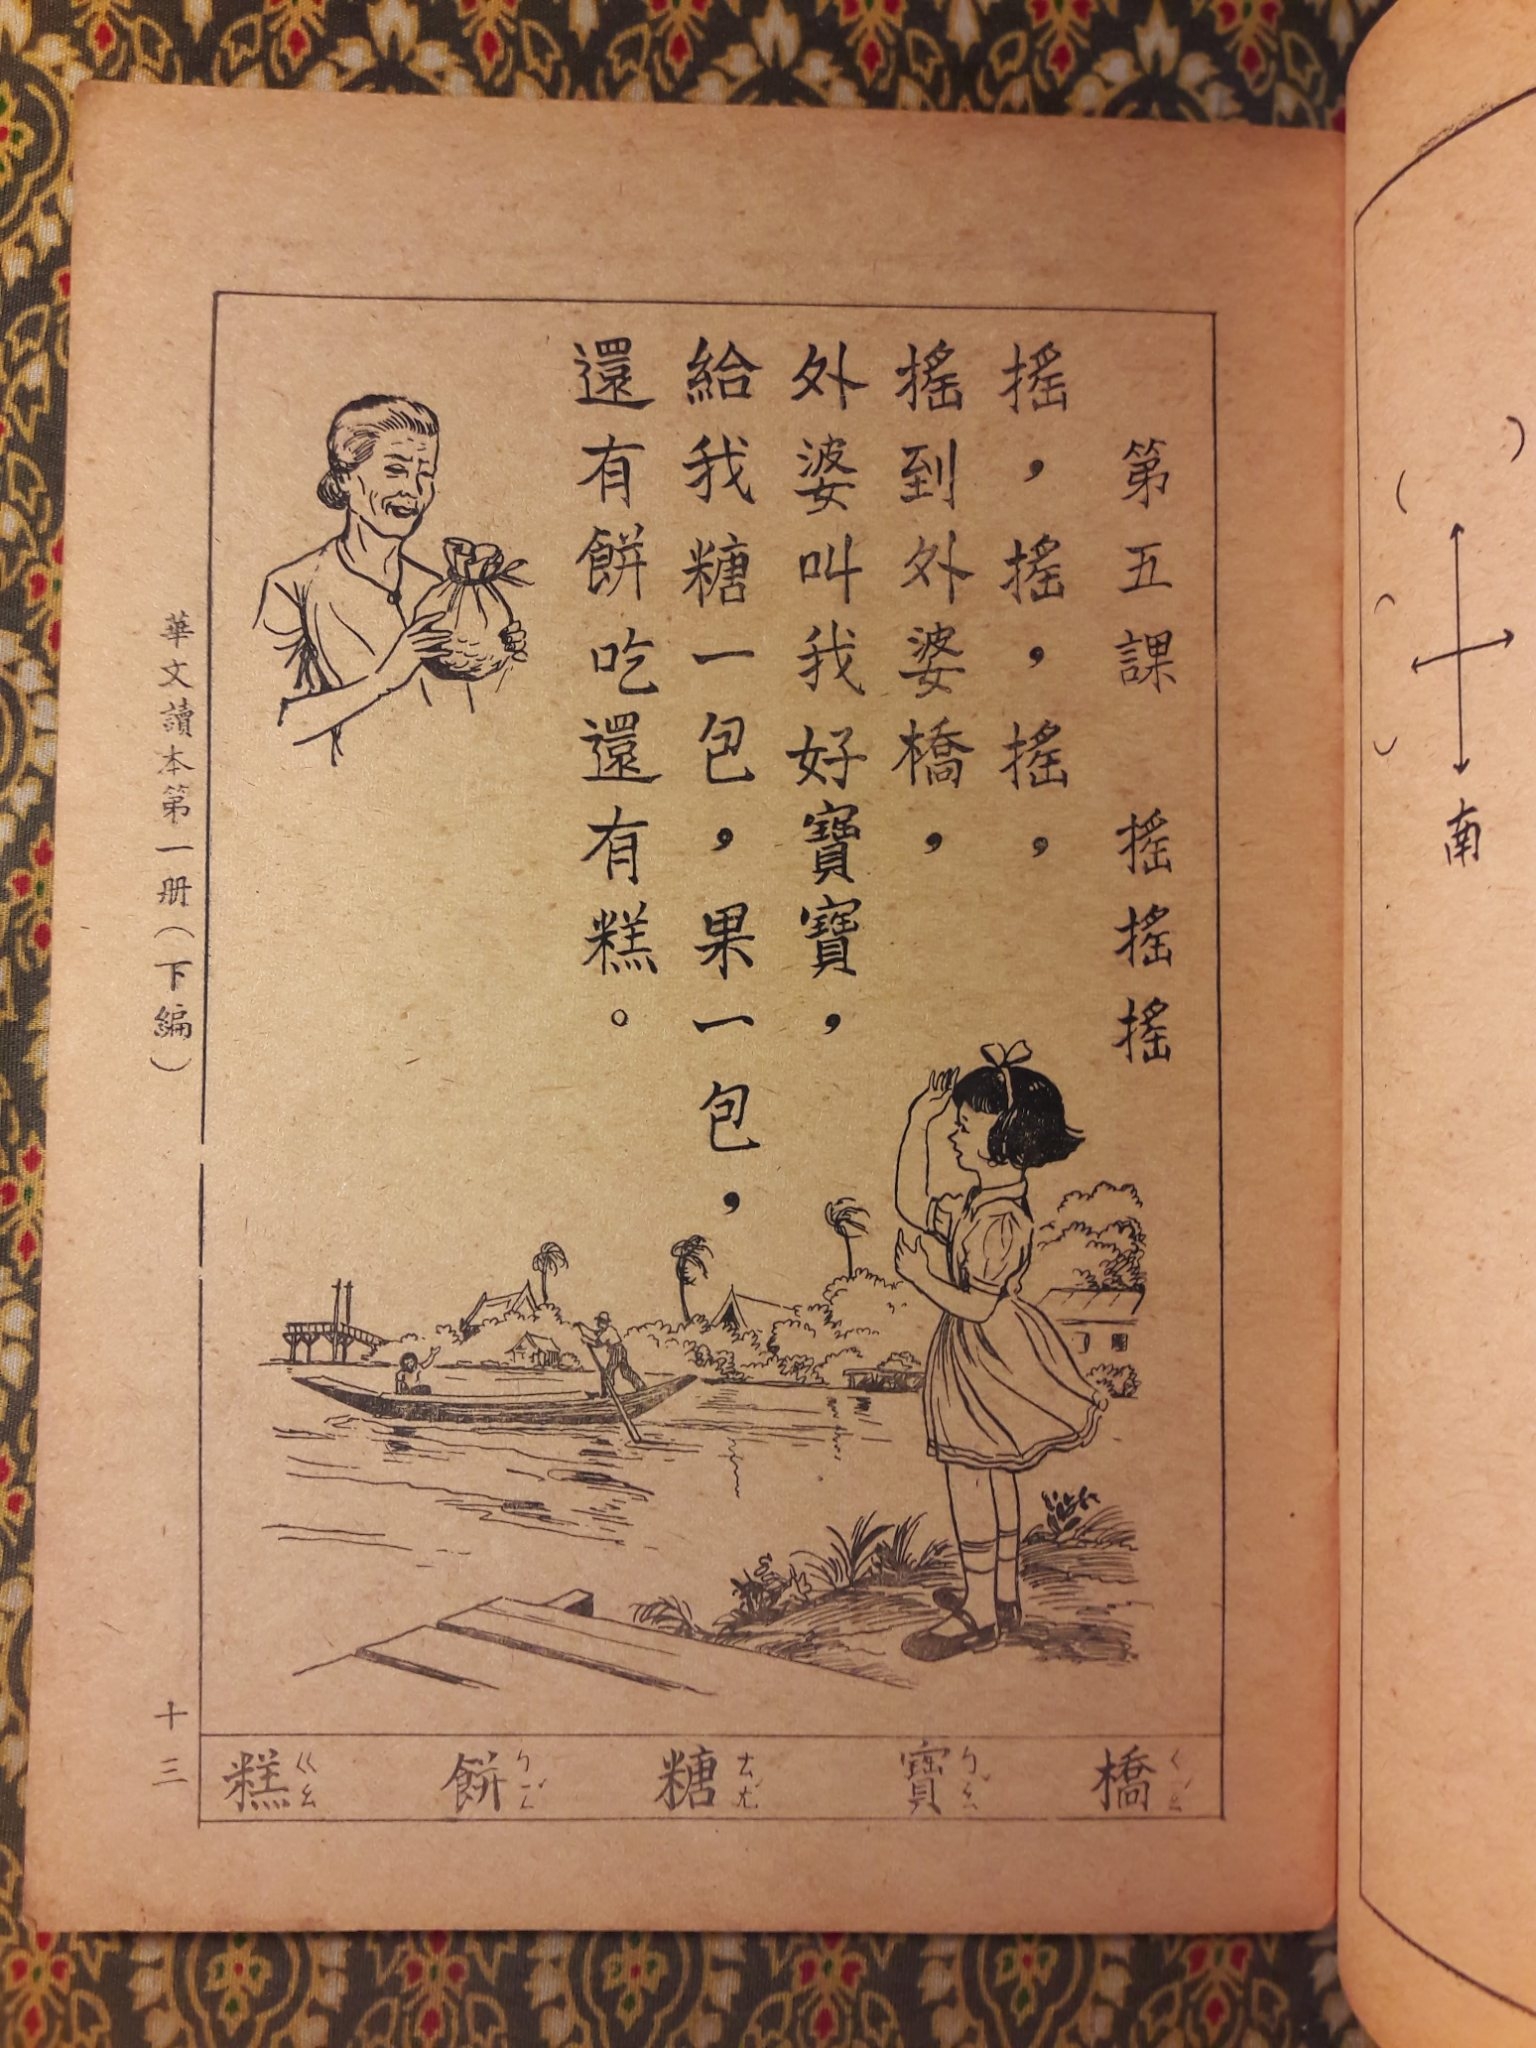 第五課　搖搖搖
搖，搖，搖，
搖到外婆橋，
外婆叫我好寶寶，
給我糖一包，果一包，
還有餅吃還有糕。
橋ㄑㄧㄠˊ
寶ㄅㄠˇ
糖ㄊㄤˊ
餅ㄅㄧㄥˇ
糕ㄍㄠ
華文讀本第一册（下編）
十三
南